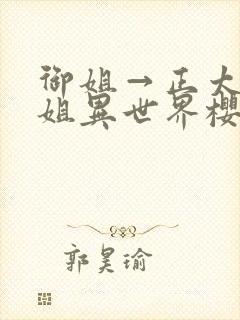 御姐→正太
姐異世界櫻
郭昊瑜